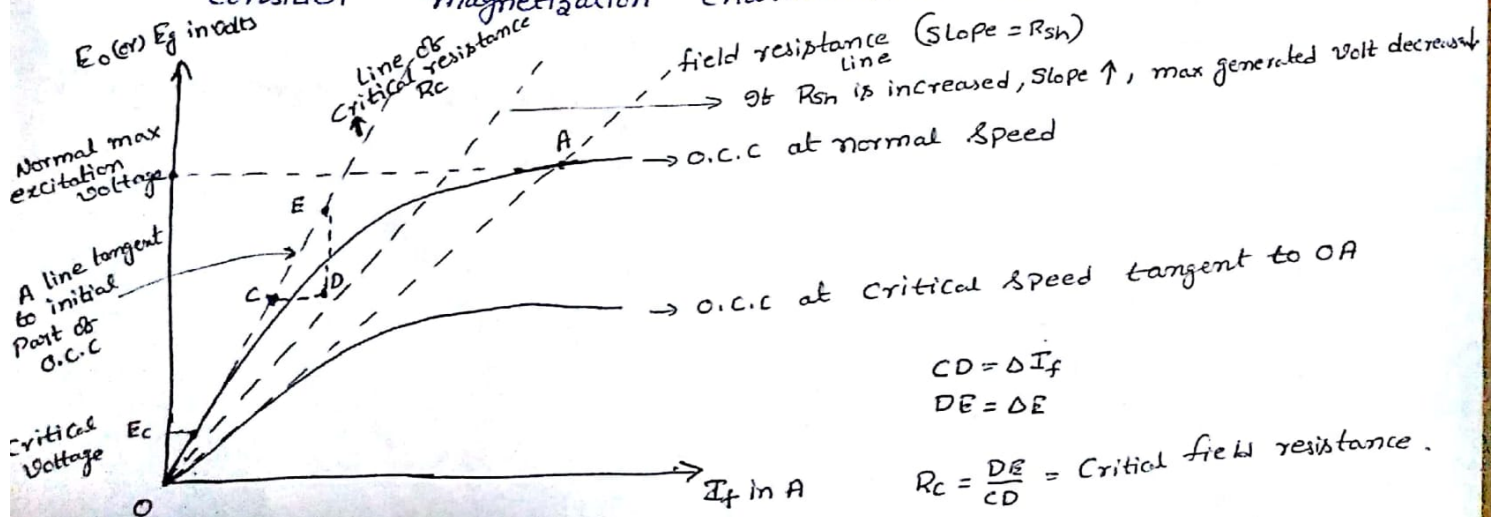 Consider magnetization
E₀ (or) Eg in volts
Line of
Critical resistance
Rc
field resistance (Slope = Rsh)
line
→ If Rsh is increased, Slope ↑, max generated volt decreased
Normal max
excitation
voltage
A
→ O.C.C at normal Speed
E
A line tangent
to initial
Part of
O.C.C
C
D
→ O.C.C at Critical Speed tangent to OA
CD = ΔIf
DE = ΔE
Critical
Voltage
Ec
O
If in A
Rc = DE/CD = Critical field resistance.